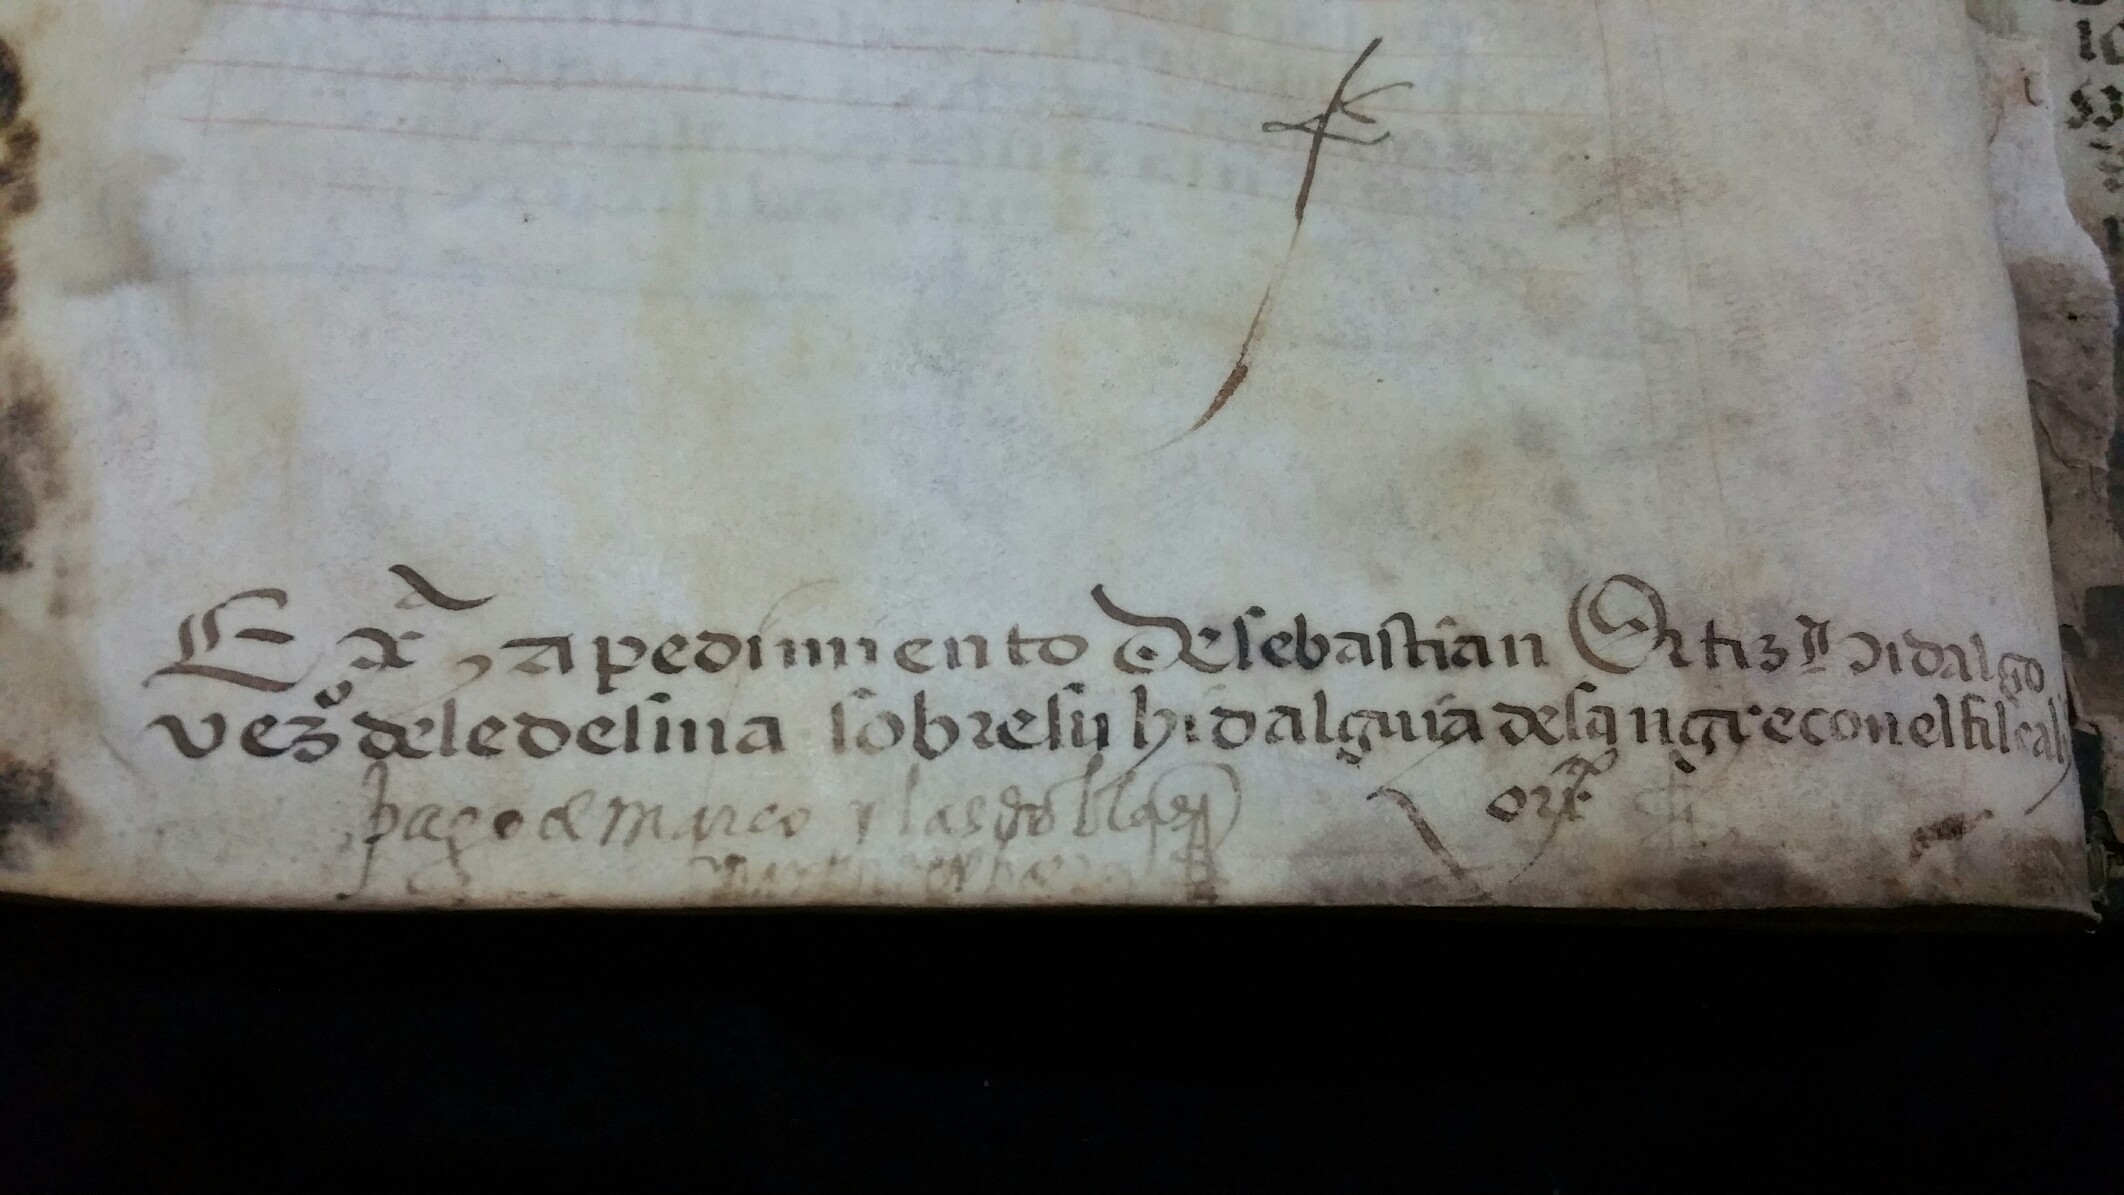 Exª, a pedimiento de sebastian Ortiz Hidalgo
vezº de ledesma sobre su hidalguia de sangre con el fiscal
pago de marco y las doblas